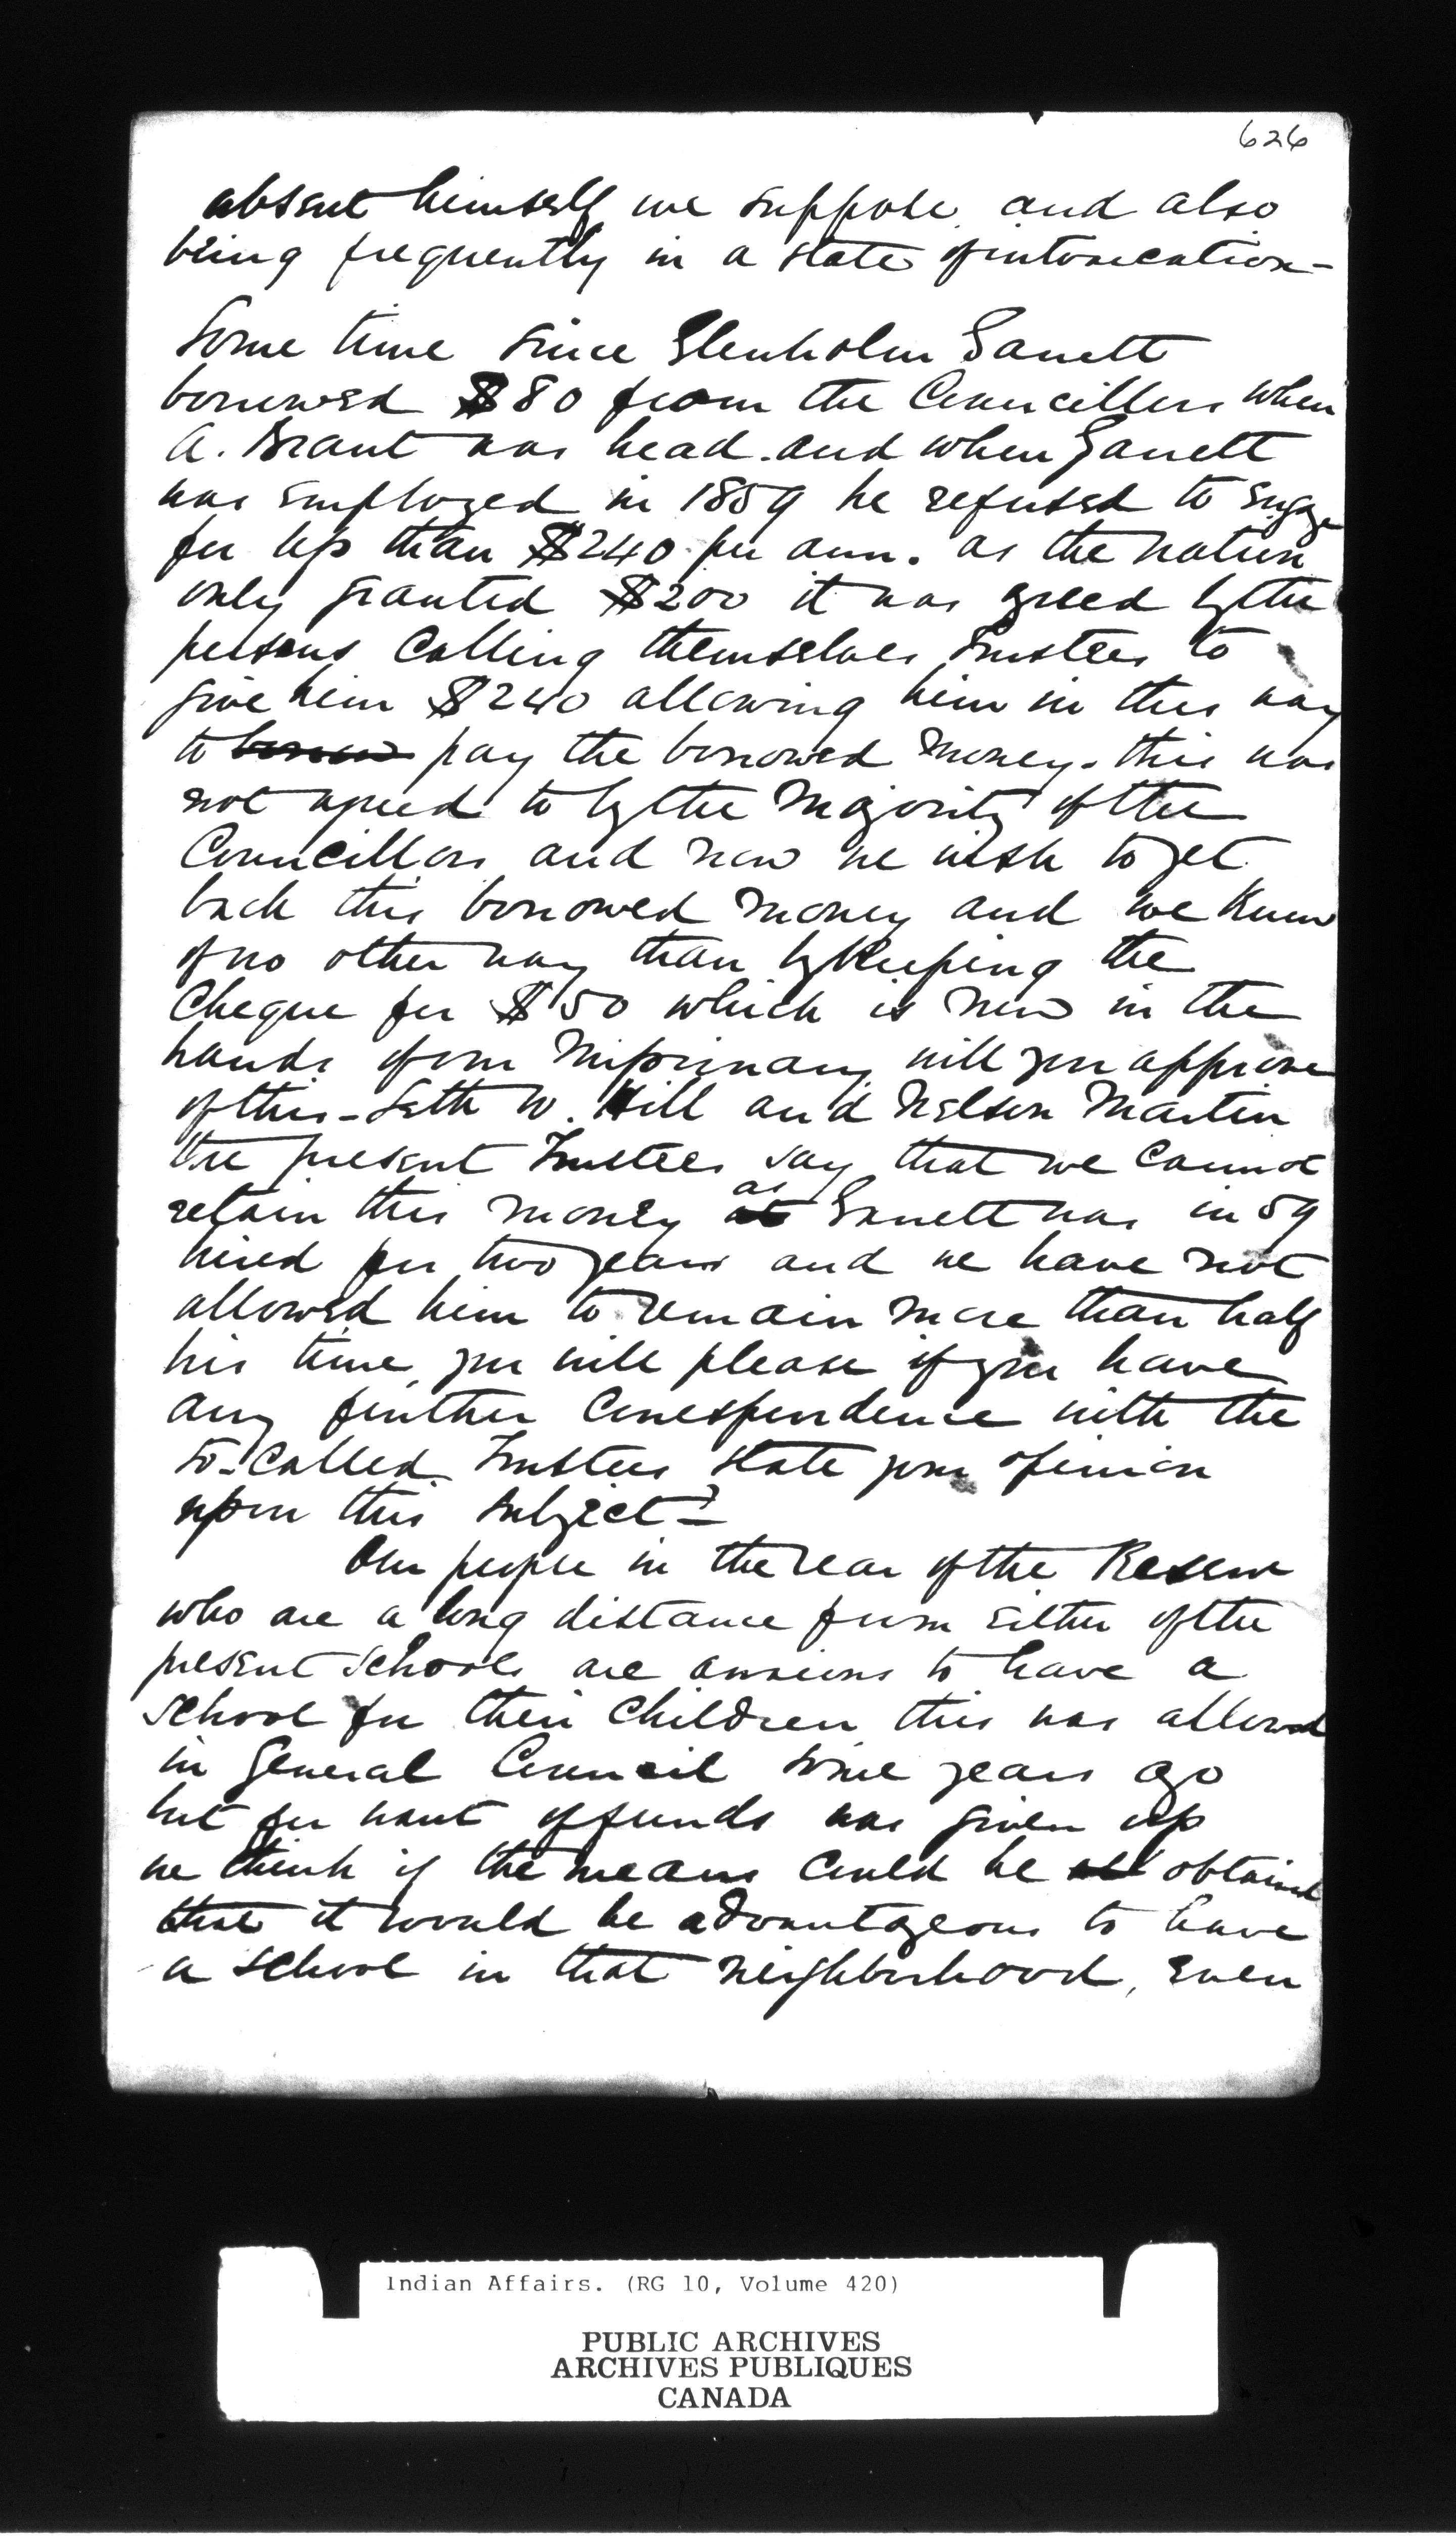 626
absent himself we suppose and also
being frequently in a state of intoxication -
Some time since Glenholm Garrett
borrowed $80 from the Councillors when
A. Brant was head. and when Garrett
was employed in 1859 he refused to engage
for less than $240 per ann. as the nation
only granted $200 it was agreed by the
persons calling themselves Trustees to
give him $240 allowing him in this way
to borrow pay the borrowed money. this was
not agreed to by the Majority of the
Councillors and now we wish to get
back this borrowed money and we know
of no other way than by keeping the
Cheque for $50 which is now in the
hands of our Missionary will you approve
of this - Seth W. Hill and Nelson Martin
the present Trustees say that we cannot
retain this money as Garrett was in 59
hired for two years and we have not
allowed him to remain more than half
his time, you will please if you have
any further Correspondence with the
so-called Trustees state your opinion
upon this subject -
Our people in the rear of the Reserve
who are a long distance from either of the
present schools are anxious to have a
school for their children this was allowed
in General Council some years ago
but for want of funds was given up
we think if the means could be obtained
that it would be advantageous to have
a school in that neighborhood, even
Indian Affairs. (RG 10, Volume 420)
PUBLIC ARCHIVES
ARCHIVES PUBLIQUES
CANADA